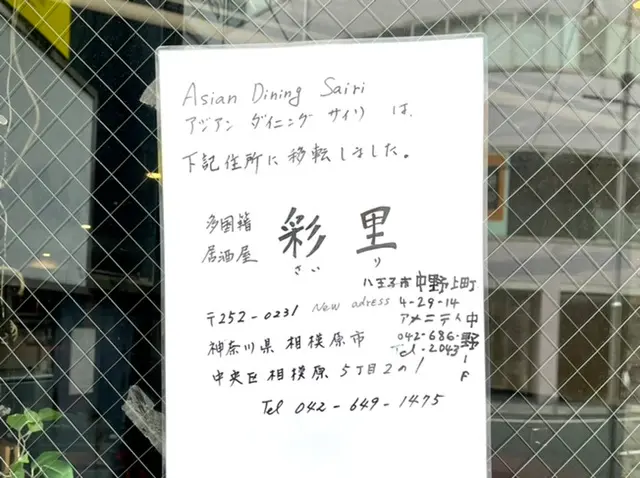 Asian Dining Sairi
アジアン ダイニング サイリ は、
下記住所に移転しました。
多国籍
居酒屋
彩里
さいり
〒252-0231
神奈川県 相模原市
中央区相模原 5丁目2の1
Tel 042-649-1475
New adress
八王子市中野上町
4-29-14
アメニティ中野1F
042-686-
Tel.2043